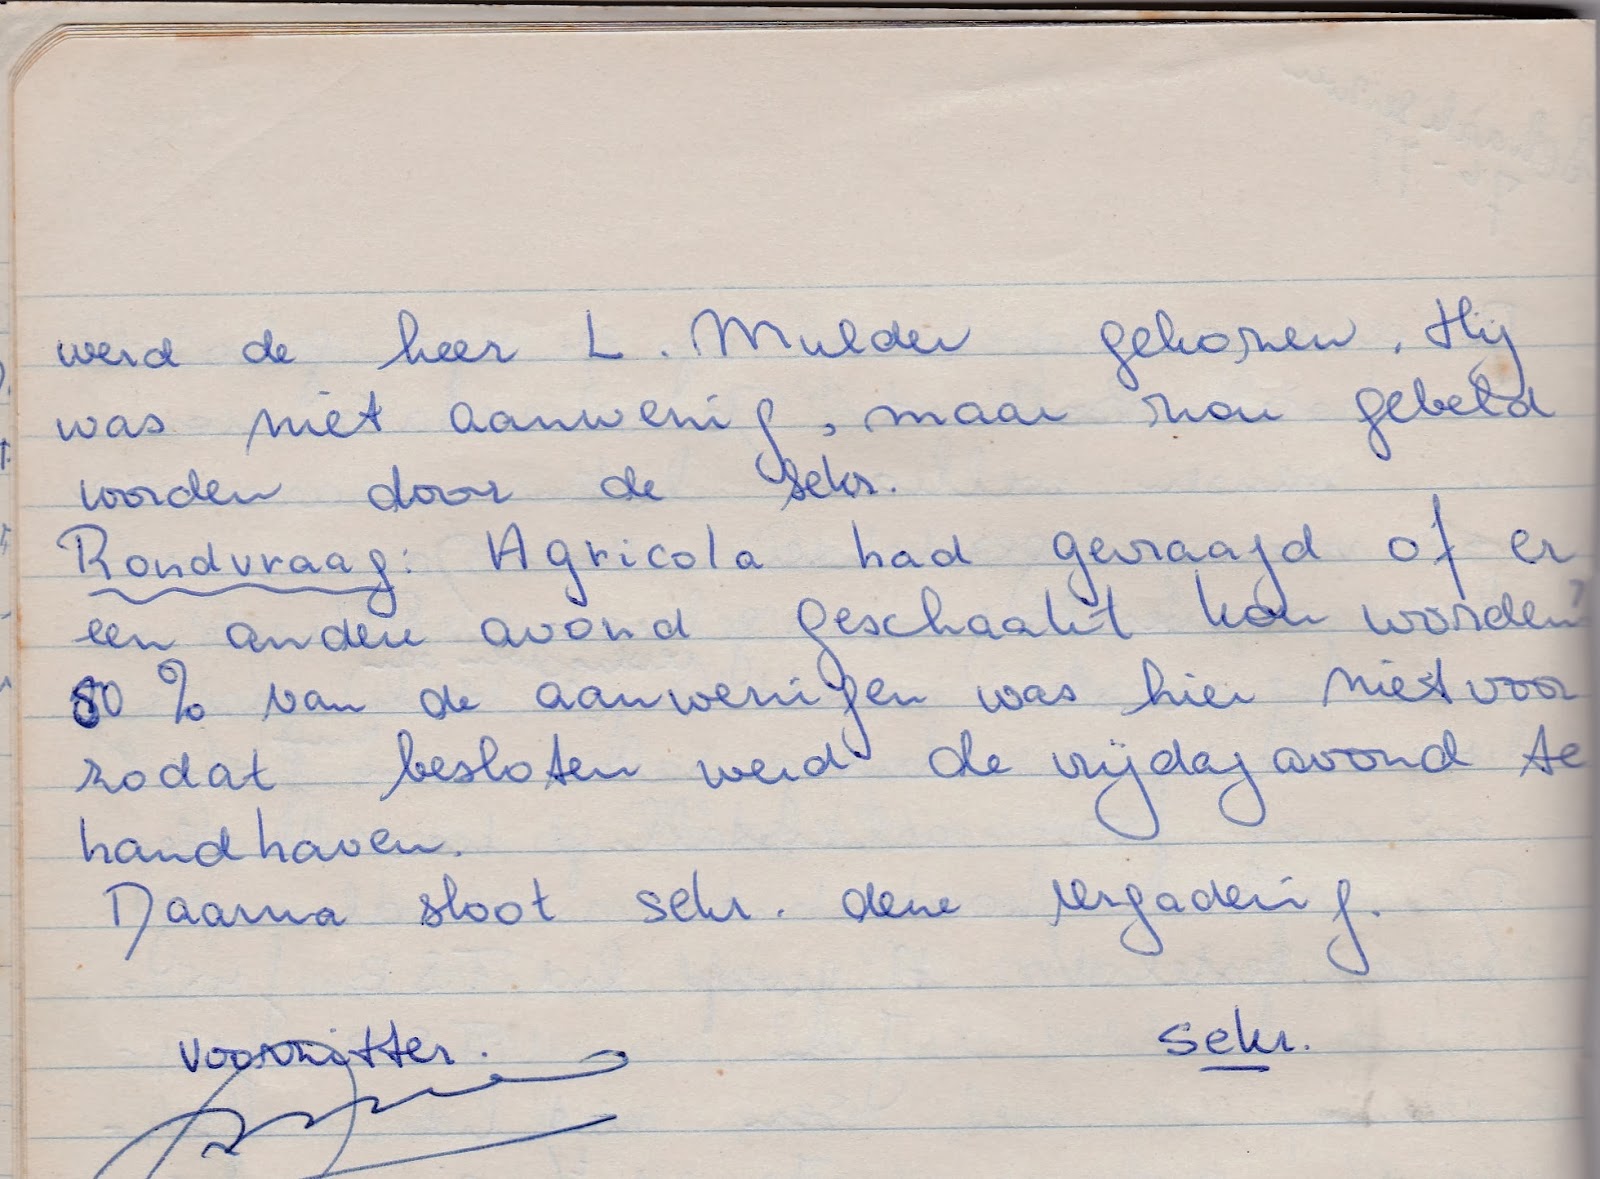 werd de heer L. Mulder gekozen. Hij
was niet aanwezig, maar zou gebeld
worden door de sekr.
Rondvraag: Agricola had gevraagd of er
een andere avond geschaakt kon worden?
80 % van de aanwezigen was hier niet voor
zodat besloten werd de vrijdagavond te
handhaven.
Daarna sloot sekr. deze vergadering.
voorzitter.
sekr.